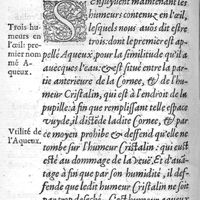 Trois hu-
meurs en
l'œil: pre-
mier nom
mé A-
queux.
Vtilité de
l'Aqueux.
S'Ensuyuent maintenant les
humeurs contenuz en l'œil,
lesquels nous auõs dit estre
trois: dont le premier est ap-
pellé Aqueux, pour la similitude qu'il a
auecques l'eau: & est situé entre la par-
tie anterieure de la Cornée, & de l'hu-
meur Cristalin, qui est à l'endroit de la
pupille: à fin que remplissant telle espace
vuyde, il dilate ladite Cornée, & par
ce moyen prohibe & deffend qu'elle ne
tombe sur l'humeur Cristalin: qui eust
esté au dommage de la veuë. Et d'auan-
tage à fin que par son humidité, il def-
fende que ledit humeur Cristalin ne soit